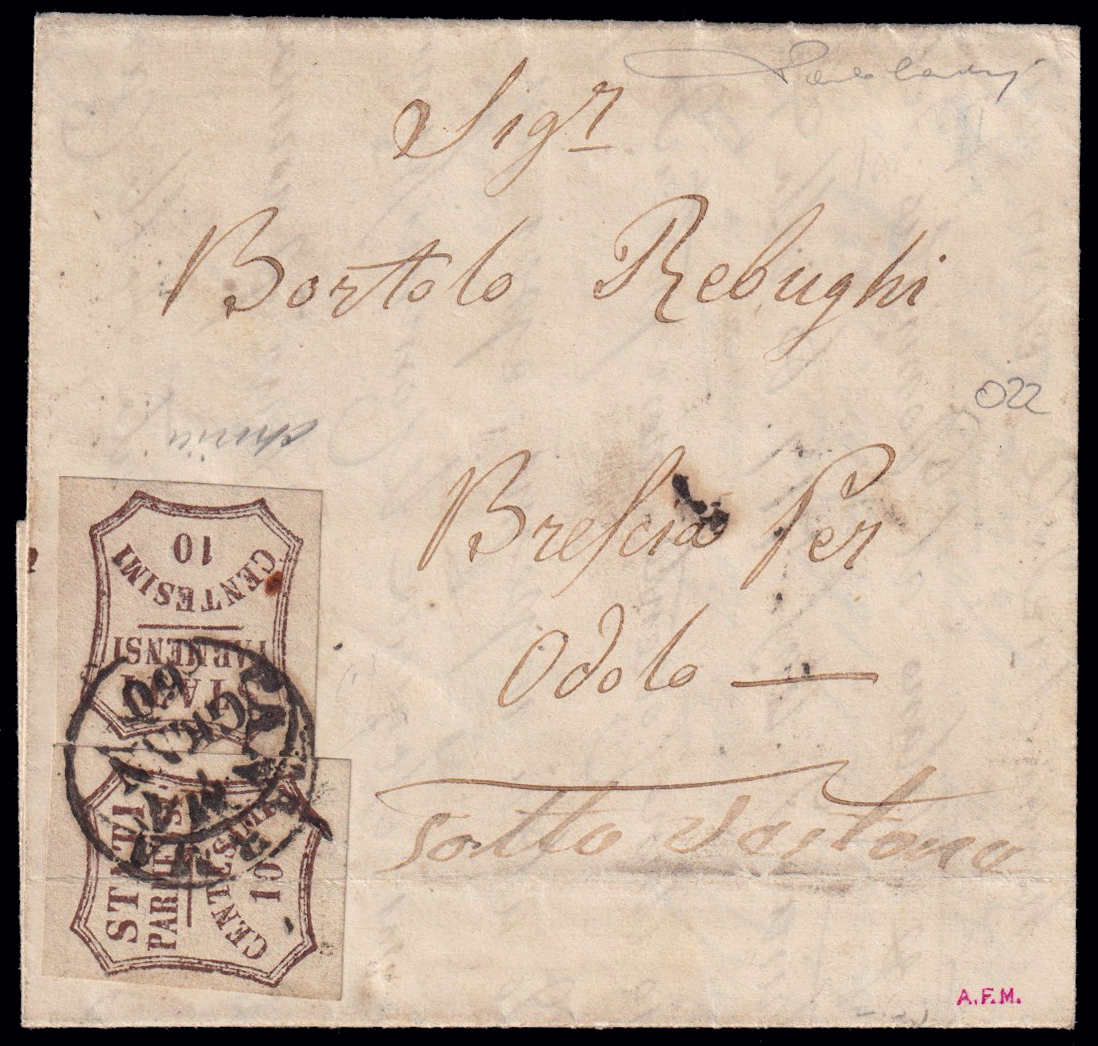 Sigr
Bortolo Rebughi
022
Brescia Per
Odolo
Sotto
10
CENTESIMI
PARMENSI
STATI
PARMA
60
STATI
PARMENSI
CENTESIMI
10
A.F.M.